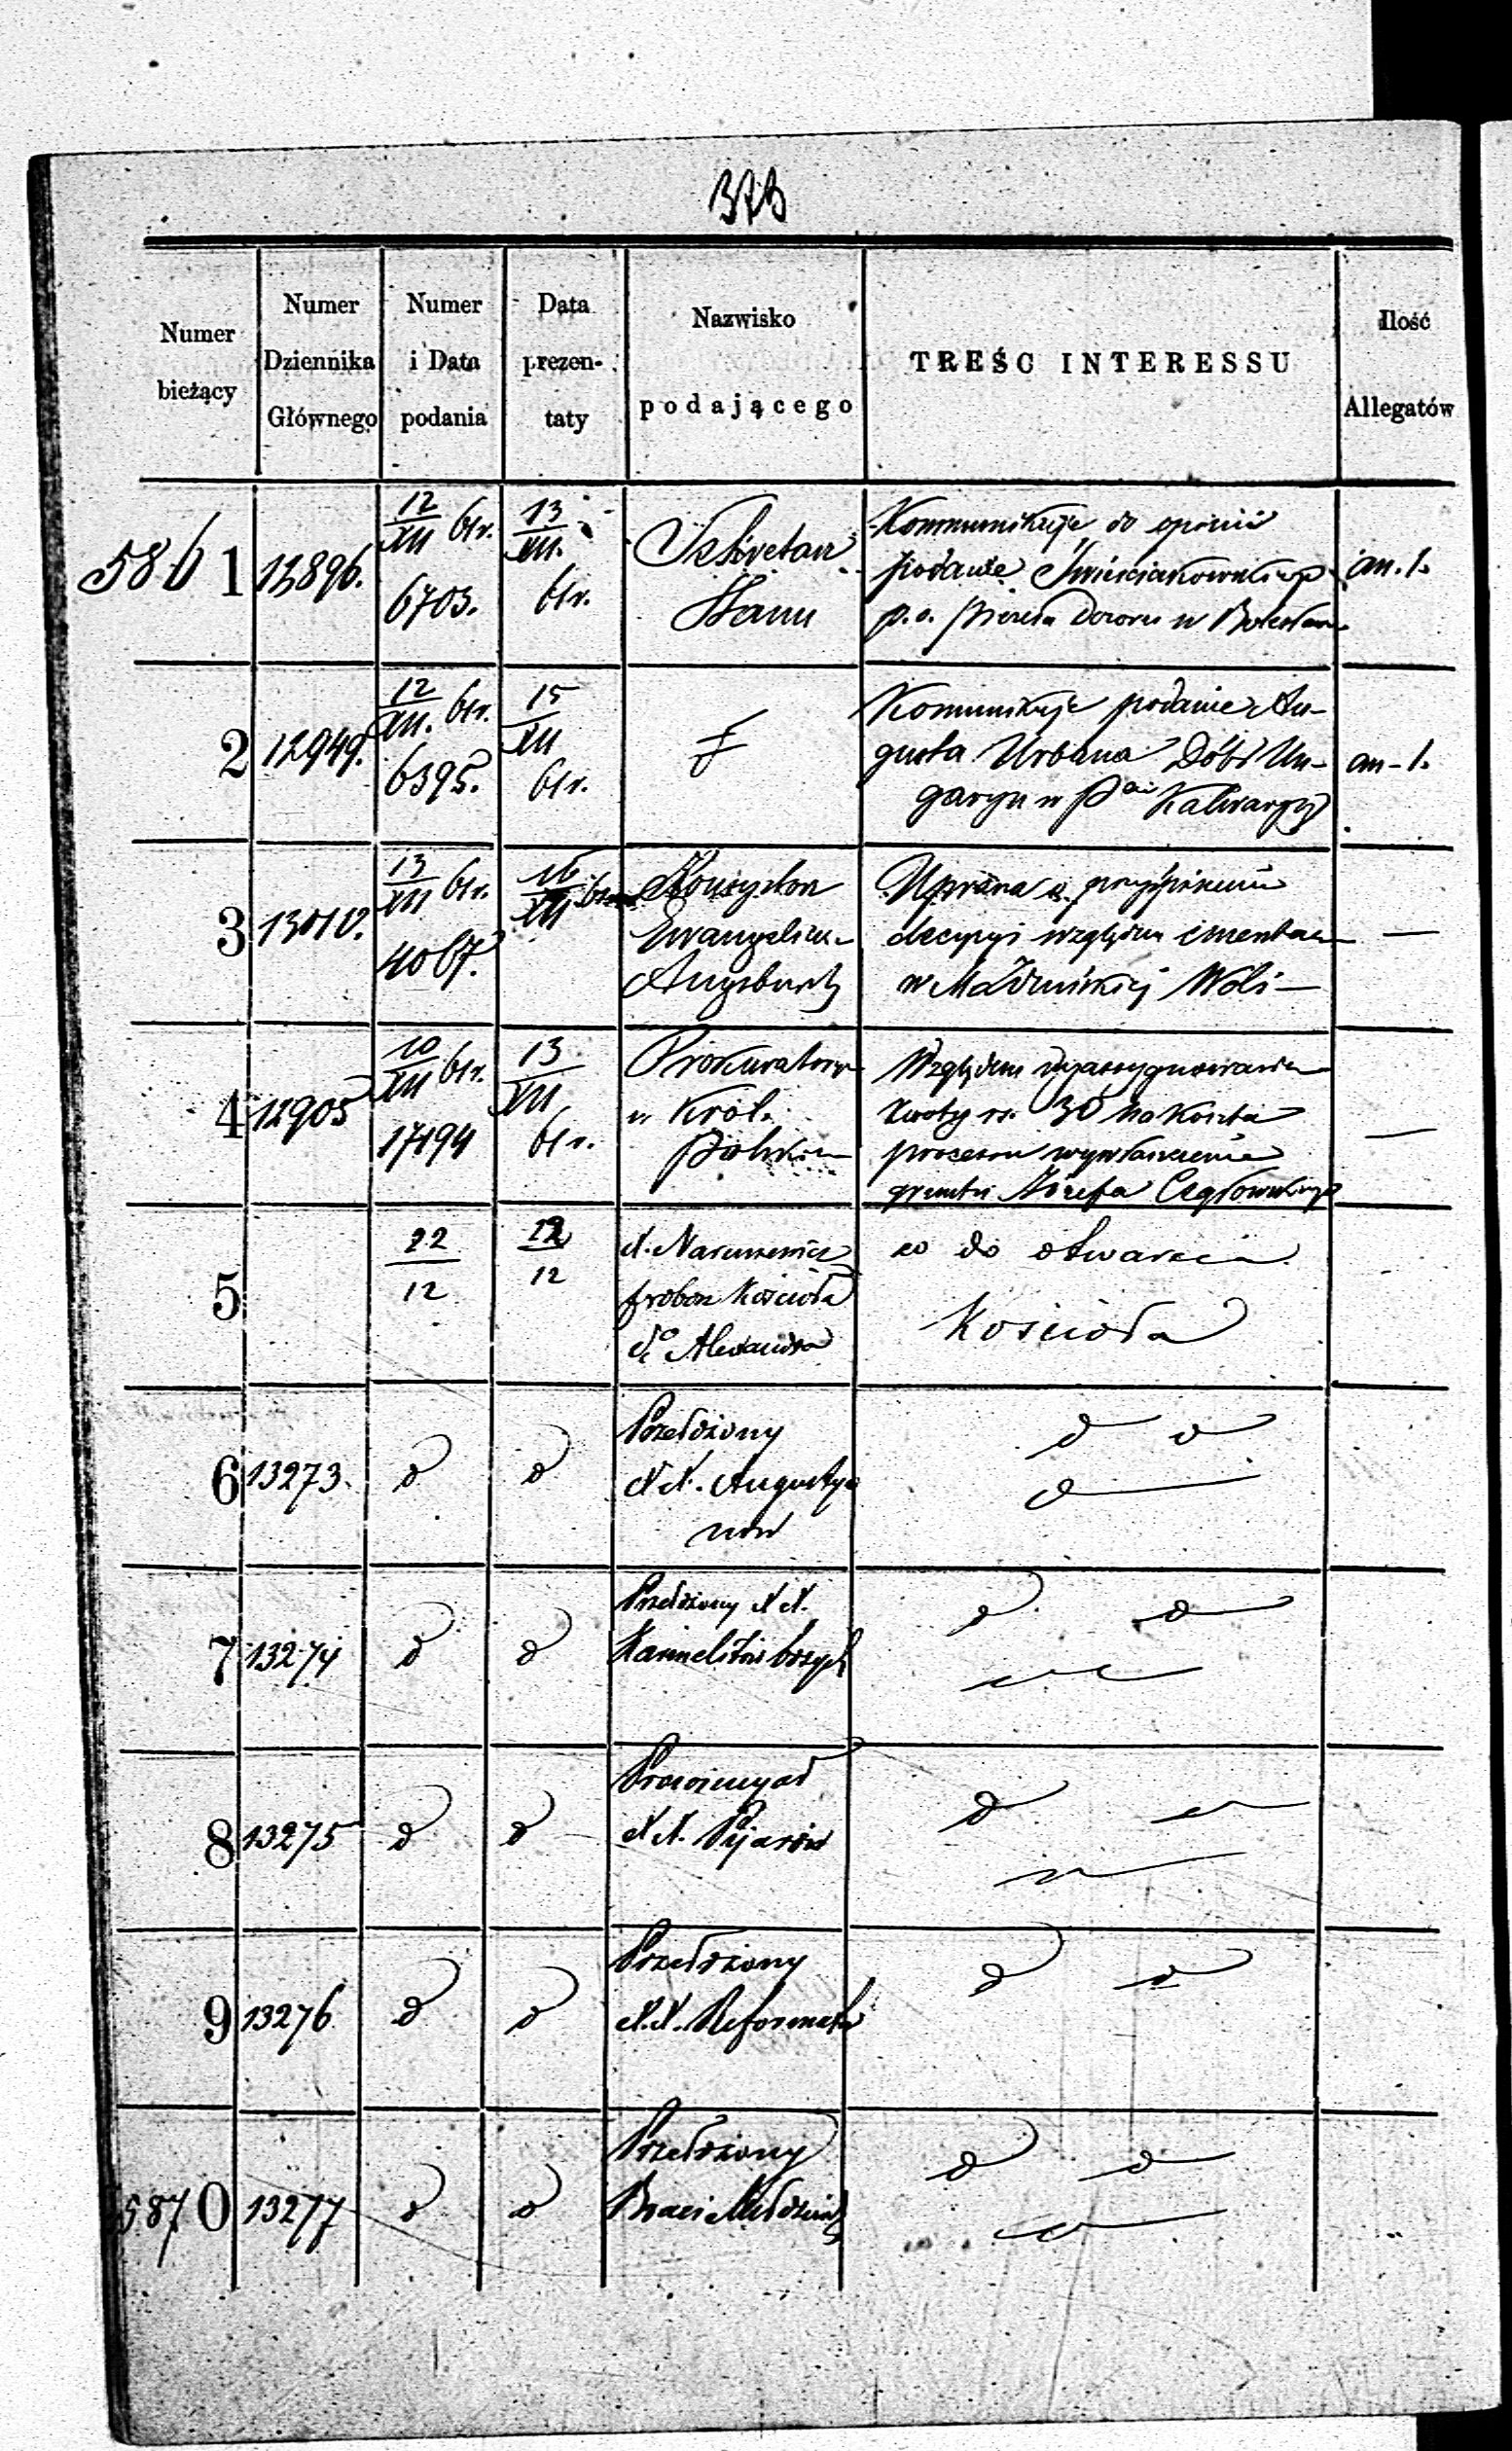 373
Numer bieżący
Numer Dziennika Głównego
Numer i Data podania
Data prezen- taty
Nazwisko podającego
TREŚC INTERESSU
Ilość Allegatów
5861
12896.
12/XII 61 r.
6703.
13/XII.
61 r.
Sekretarz
Stanu
Kommunikuje do opinii
podanie
p.o. Pisarza Dozoru w
an. 1.
2
12949.
12/XII. 61 r.
6395.
15/XII
61 r.
Komunikuje podanie Au-
gusta Urbana Dóbr Un-
garyn w Kalwaryi
an - 1.
3
13012.
13/XII 61 r.
4067.
16/XII
Konsystorz
Ewangelicko
Augsburski
Uprasza o przyśpieszenie
decyzyi względem cmentarza
w Zduńskiej Woli —
—
4
12905
10/XII 61 r.
17194
13/XII
61 r.
Prokuratorya
w Król.
Polskiem
Względem wyassygnowania
kwoty rs. 30 na koszta
procesu wywłaszczenia
gruntu Józefa
—
5
22/12
12
X. Naruszewicz
probosz Kościoła
Sgo Alexandra
co do otwarcia
Kościoła
6
13273.
d
d
Przełożony
XX. Augustya
nów
d d
d
7
13274
d
d
Przełożony XX.
Karmelitów bosych
d d
8
13275
d
d
Prowincyał
XX. Pijarów
d
9
13276
d
d
Przełożony
XX. Reformatów
d d
5870
13277
d
d
Przełożony
Braci
d d